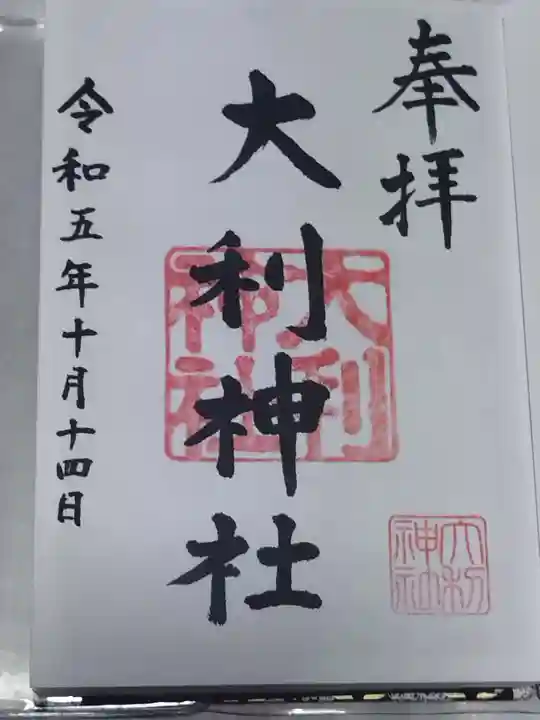 奉拝
大利神社
令和五年十月十四日
大利神社
大利神社